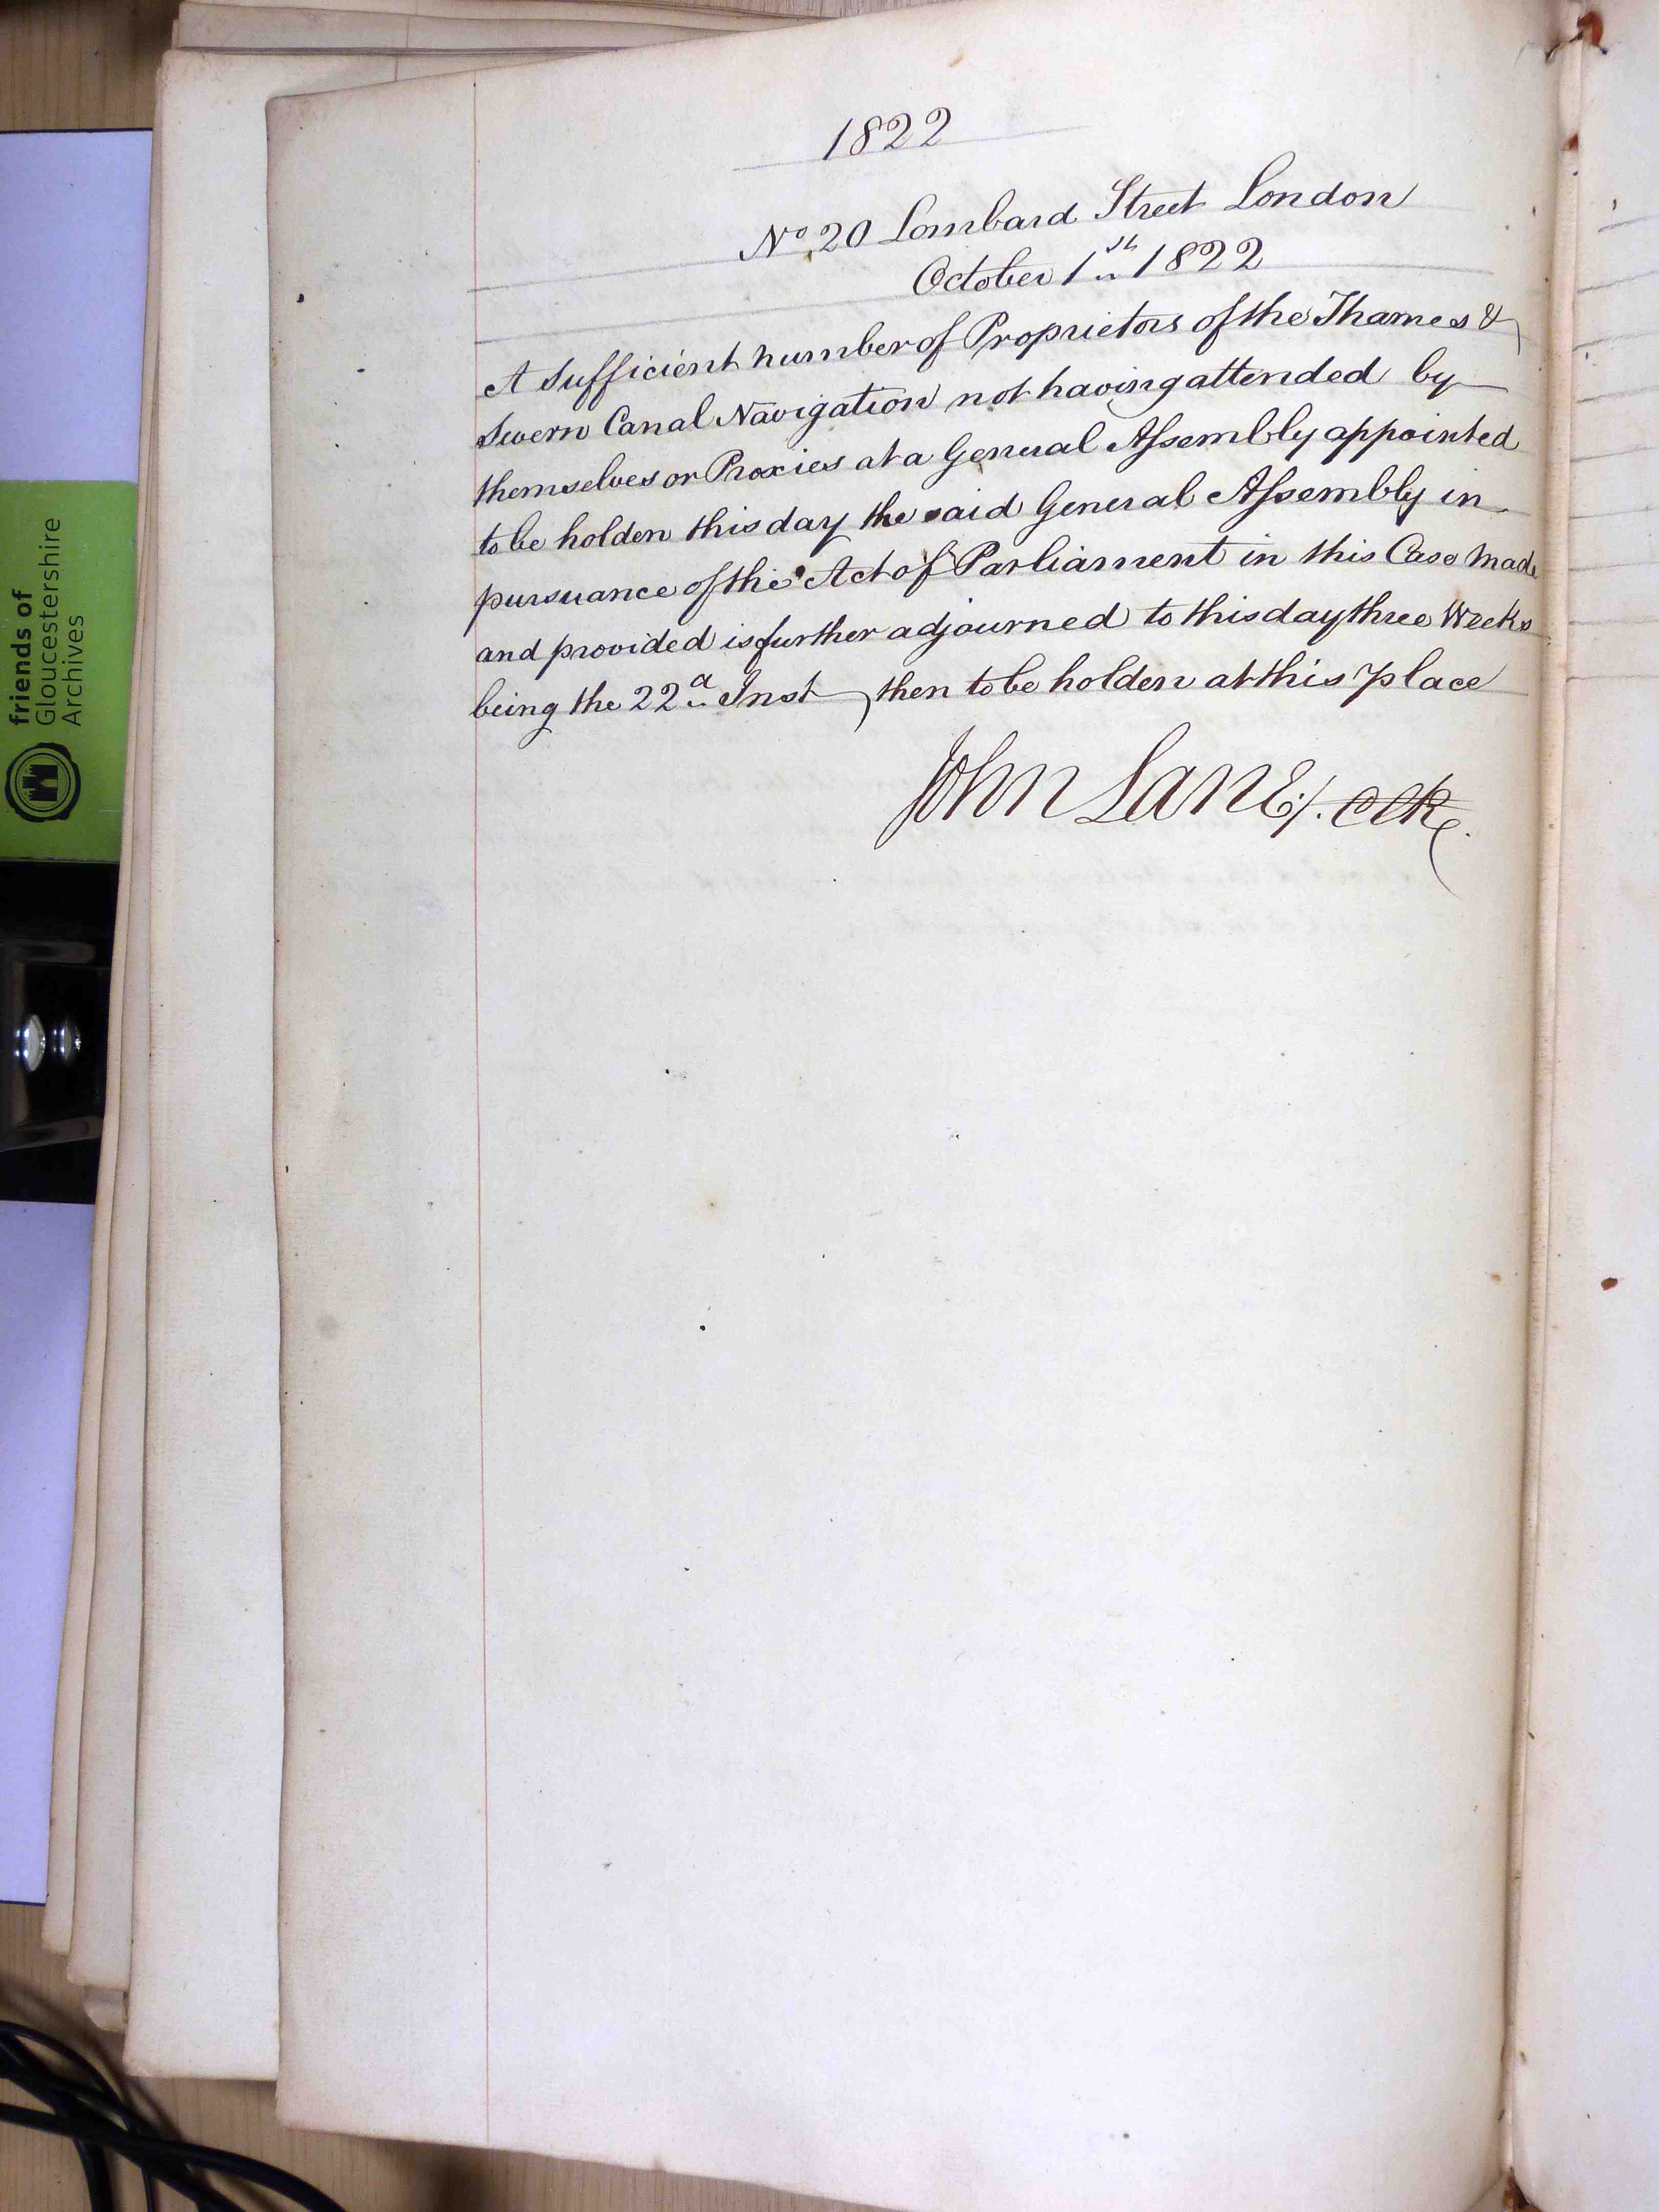 1822
No 20 Lombard Street London
October 1st 1822
A Sufficient number of Proprietors of the Thames &
Severn Canal Navigation not having attended by
themselves or Proxies at a General Assembly appointed
to be holden this day the said General Assembly in
pursuance of the Act of Parliament in this Case made
and provided is further adjourned to this day three Weeks
being the 22d Inst then to be holden at this place
John Lane, Clk.
friends of
Gloucestershire
Archives